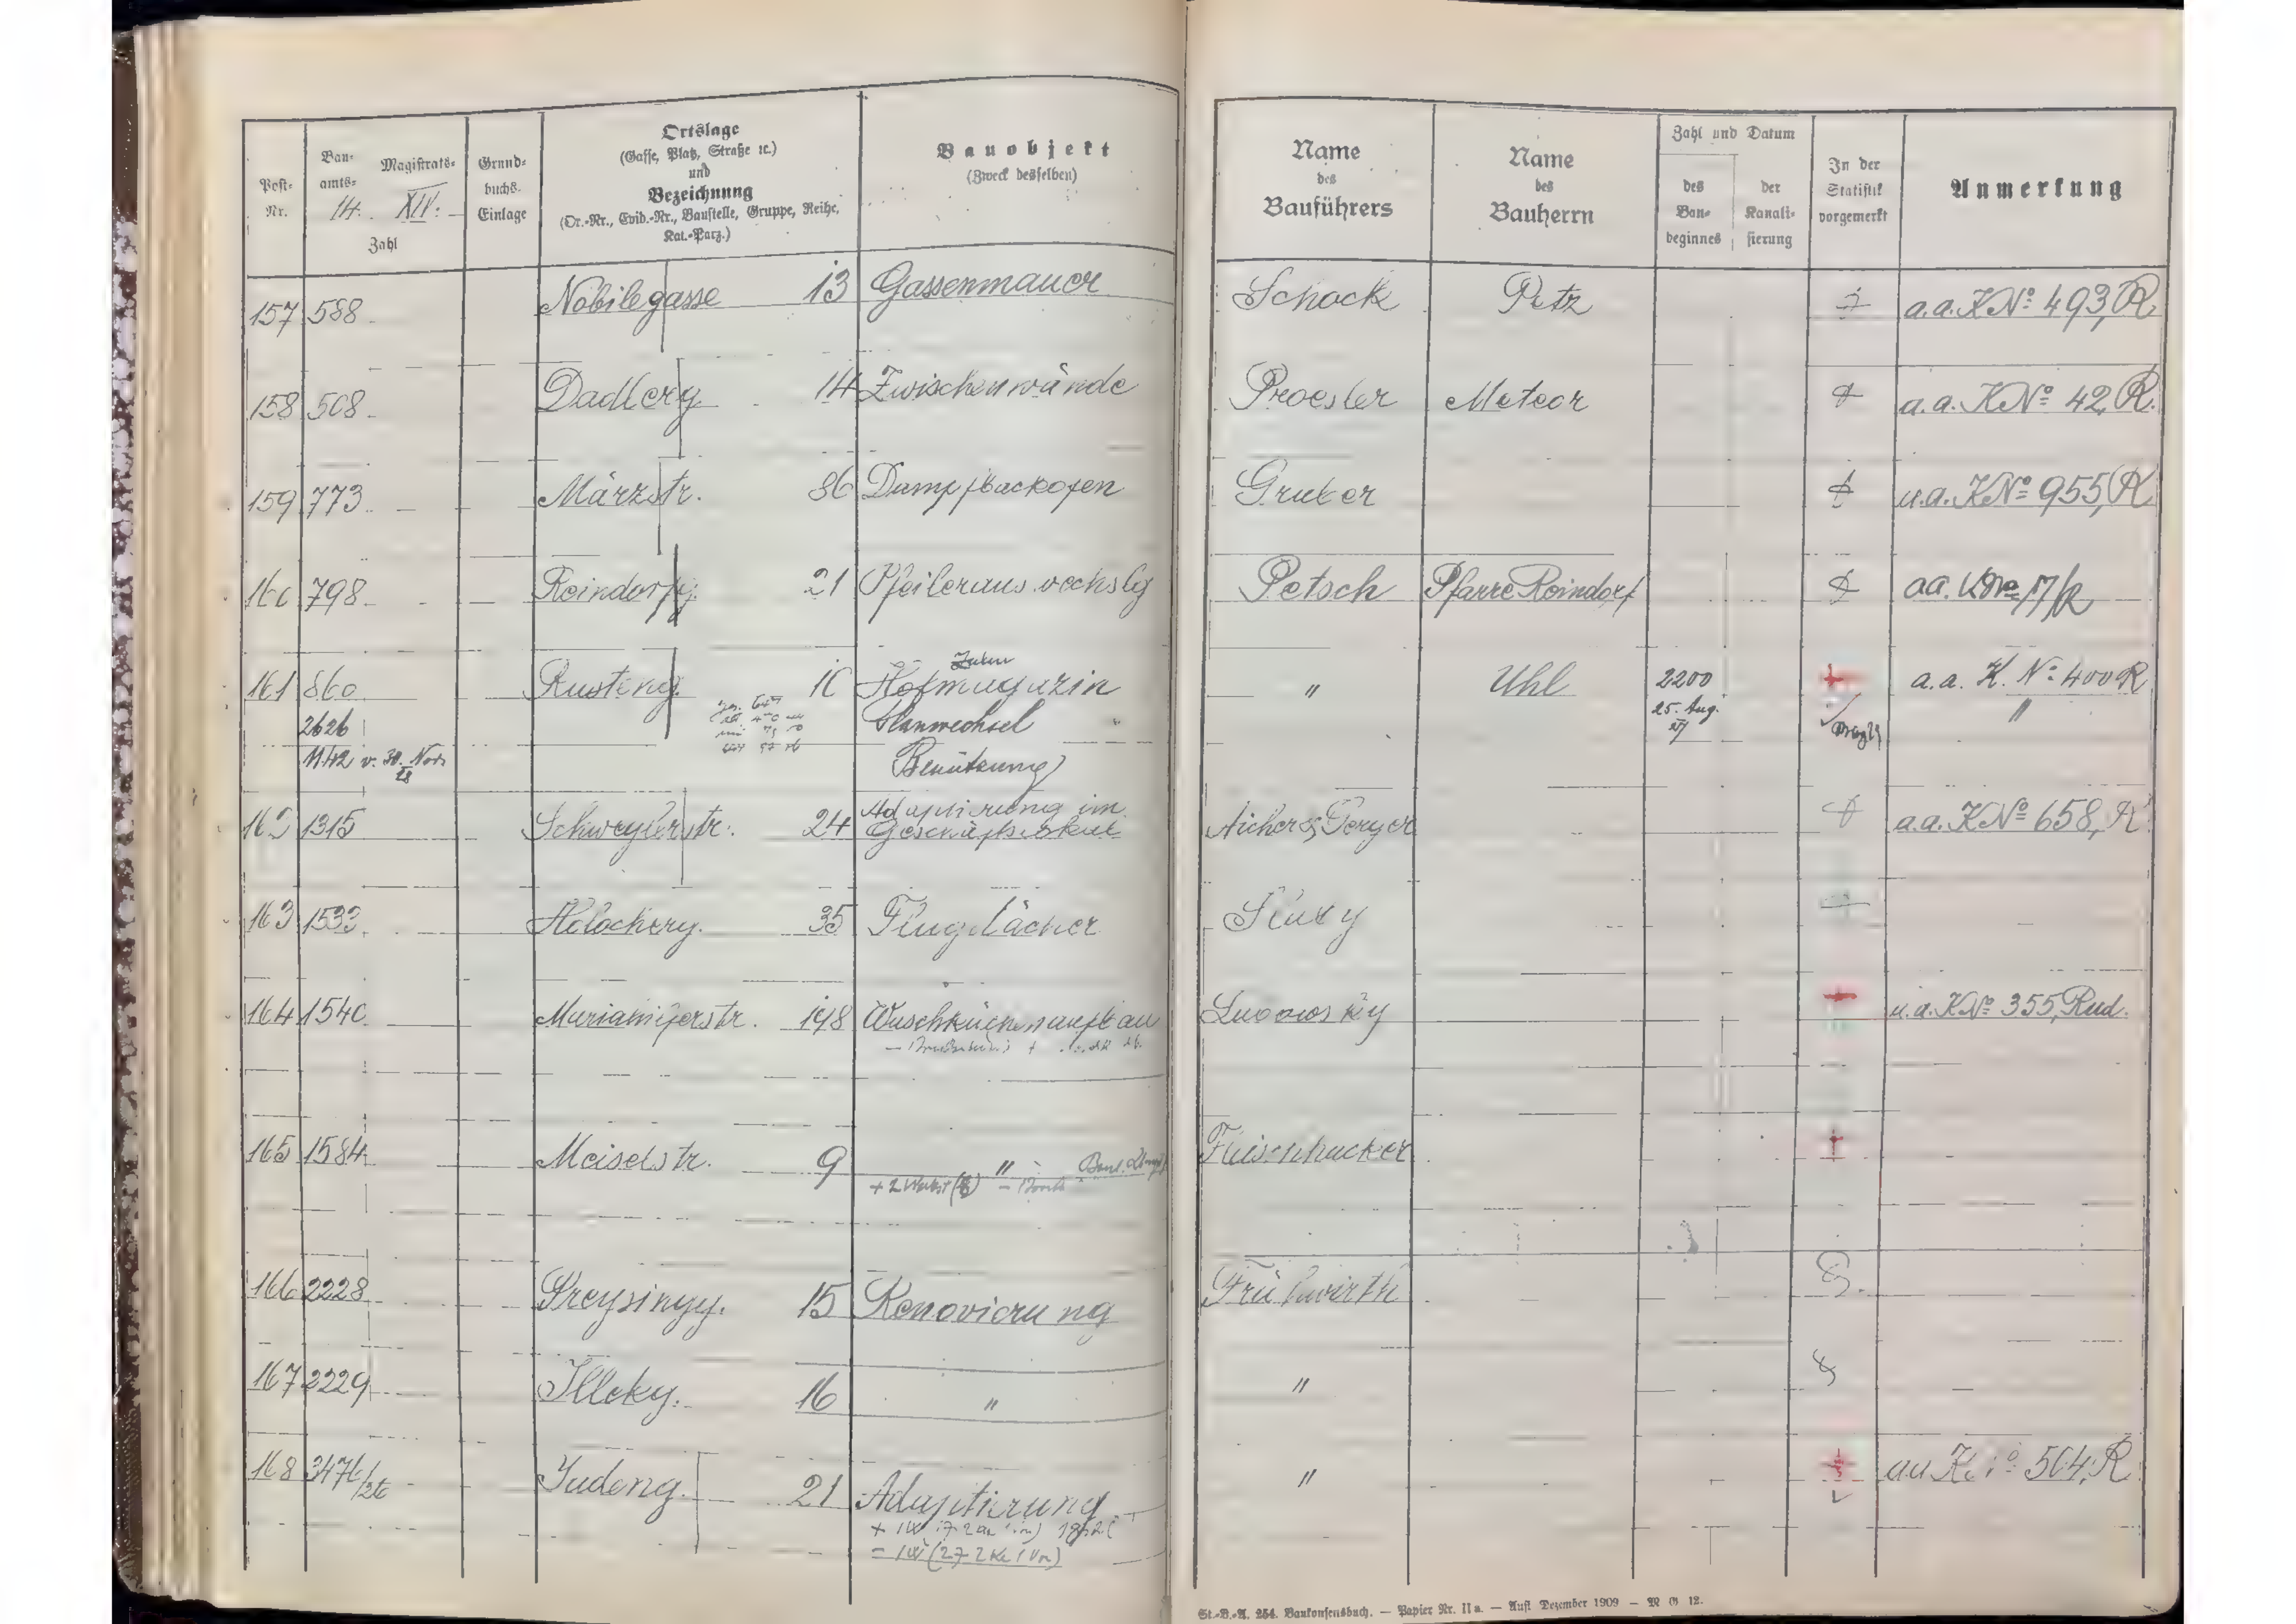 Post-Nr.
Bau-amts- 14. Magistrats- XIV. Zahl
Grundbuchs-Einlage
Ortslage
(Gasse, Platz, Straße ꝛc.)
und
Bezeichnung
(Or.-Nr., Evid.-Nr., Baustelle, Gruppe, Reihe,
Kat.-Parz.)
Bauobjekt
(Zweck desselben)
Name
des
Bauführers
Name
des
Bauherrn
Zahl und Datum
des
Bau-
beginnes
der
Kanali-
sierung
In der
Statistik
vorgemerkt
Anmerkung
157 588 Nobilegasse 13 Gassenmauer Schock Petz a.a. KNº 493, R.
158 508 Dadlerg 14 Zwischenwände Proesler Meteor a.a. KNº 42, R.
159 773 Märzstr. 86 Dampfbackofen Gruber a.a. KNº 955, R
160 798 Reindorfg. 21 Pfeilerauswechslg Petsch Pfarre Reindorf aa. KNº 17/R
161 860 Rusteng. 10 Hofmagazin " Uhl 2200 a.a. K. Nº 400 R
2626 Planwechsel 25. Aug. "
1142 v. 30. Nov. 28 Benützung 27
162 1315 Schweglerstr. 24 Adaptierung im Aicher & Gerger a.a. KNº 658, R
Geschäftslokal
163 1533 Holocherg. 35 Flugdächer
164 1540 Mariahilferstr. 198 Waschküchenaufbau a.a. KNº 355, Rud.
165 1584 Meiselstr. 9 " Fleischhacker
166 2228 Preysingg. 15 Renovierung Frühwirth
167 2229 Illekg. 16 " "
168 3476/26 Judeng. 21 Adaptierung " aa KNº 564, R
St.-B.-A. 254. Baukonsensbuch. — Papier Nr. IIa. — Aufl. Dezember 1909 — M G 12.